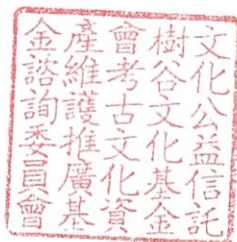 文化公益信託
樹谷文化基金
會考古文化資
產維護推廣基
金諮詢委員會